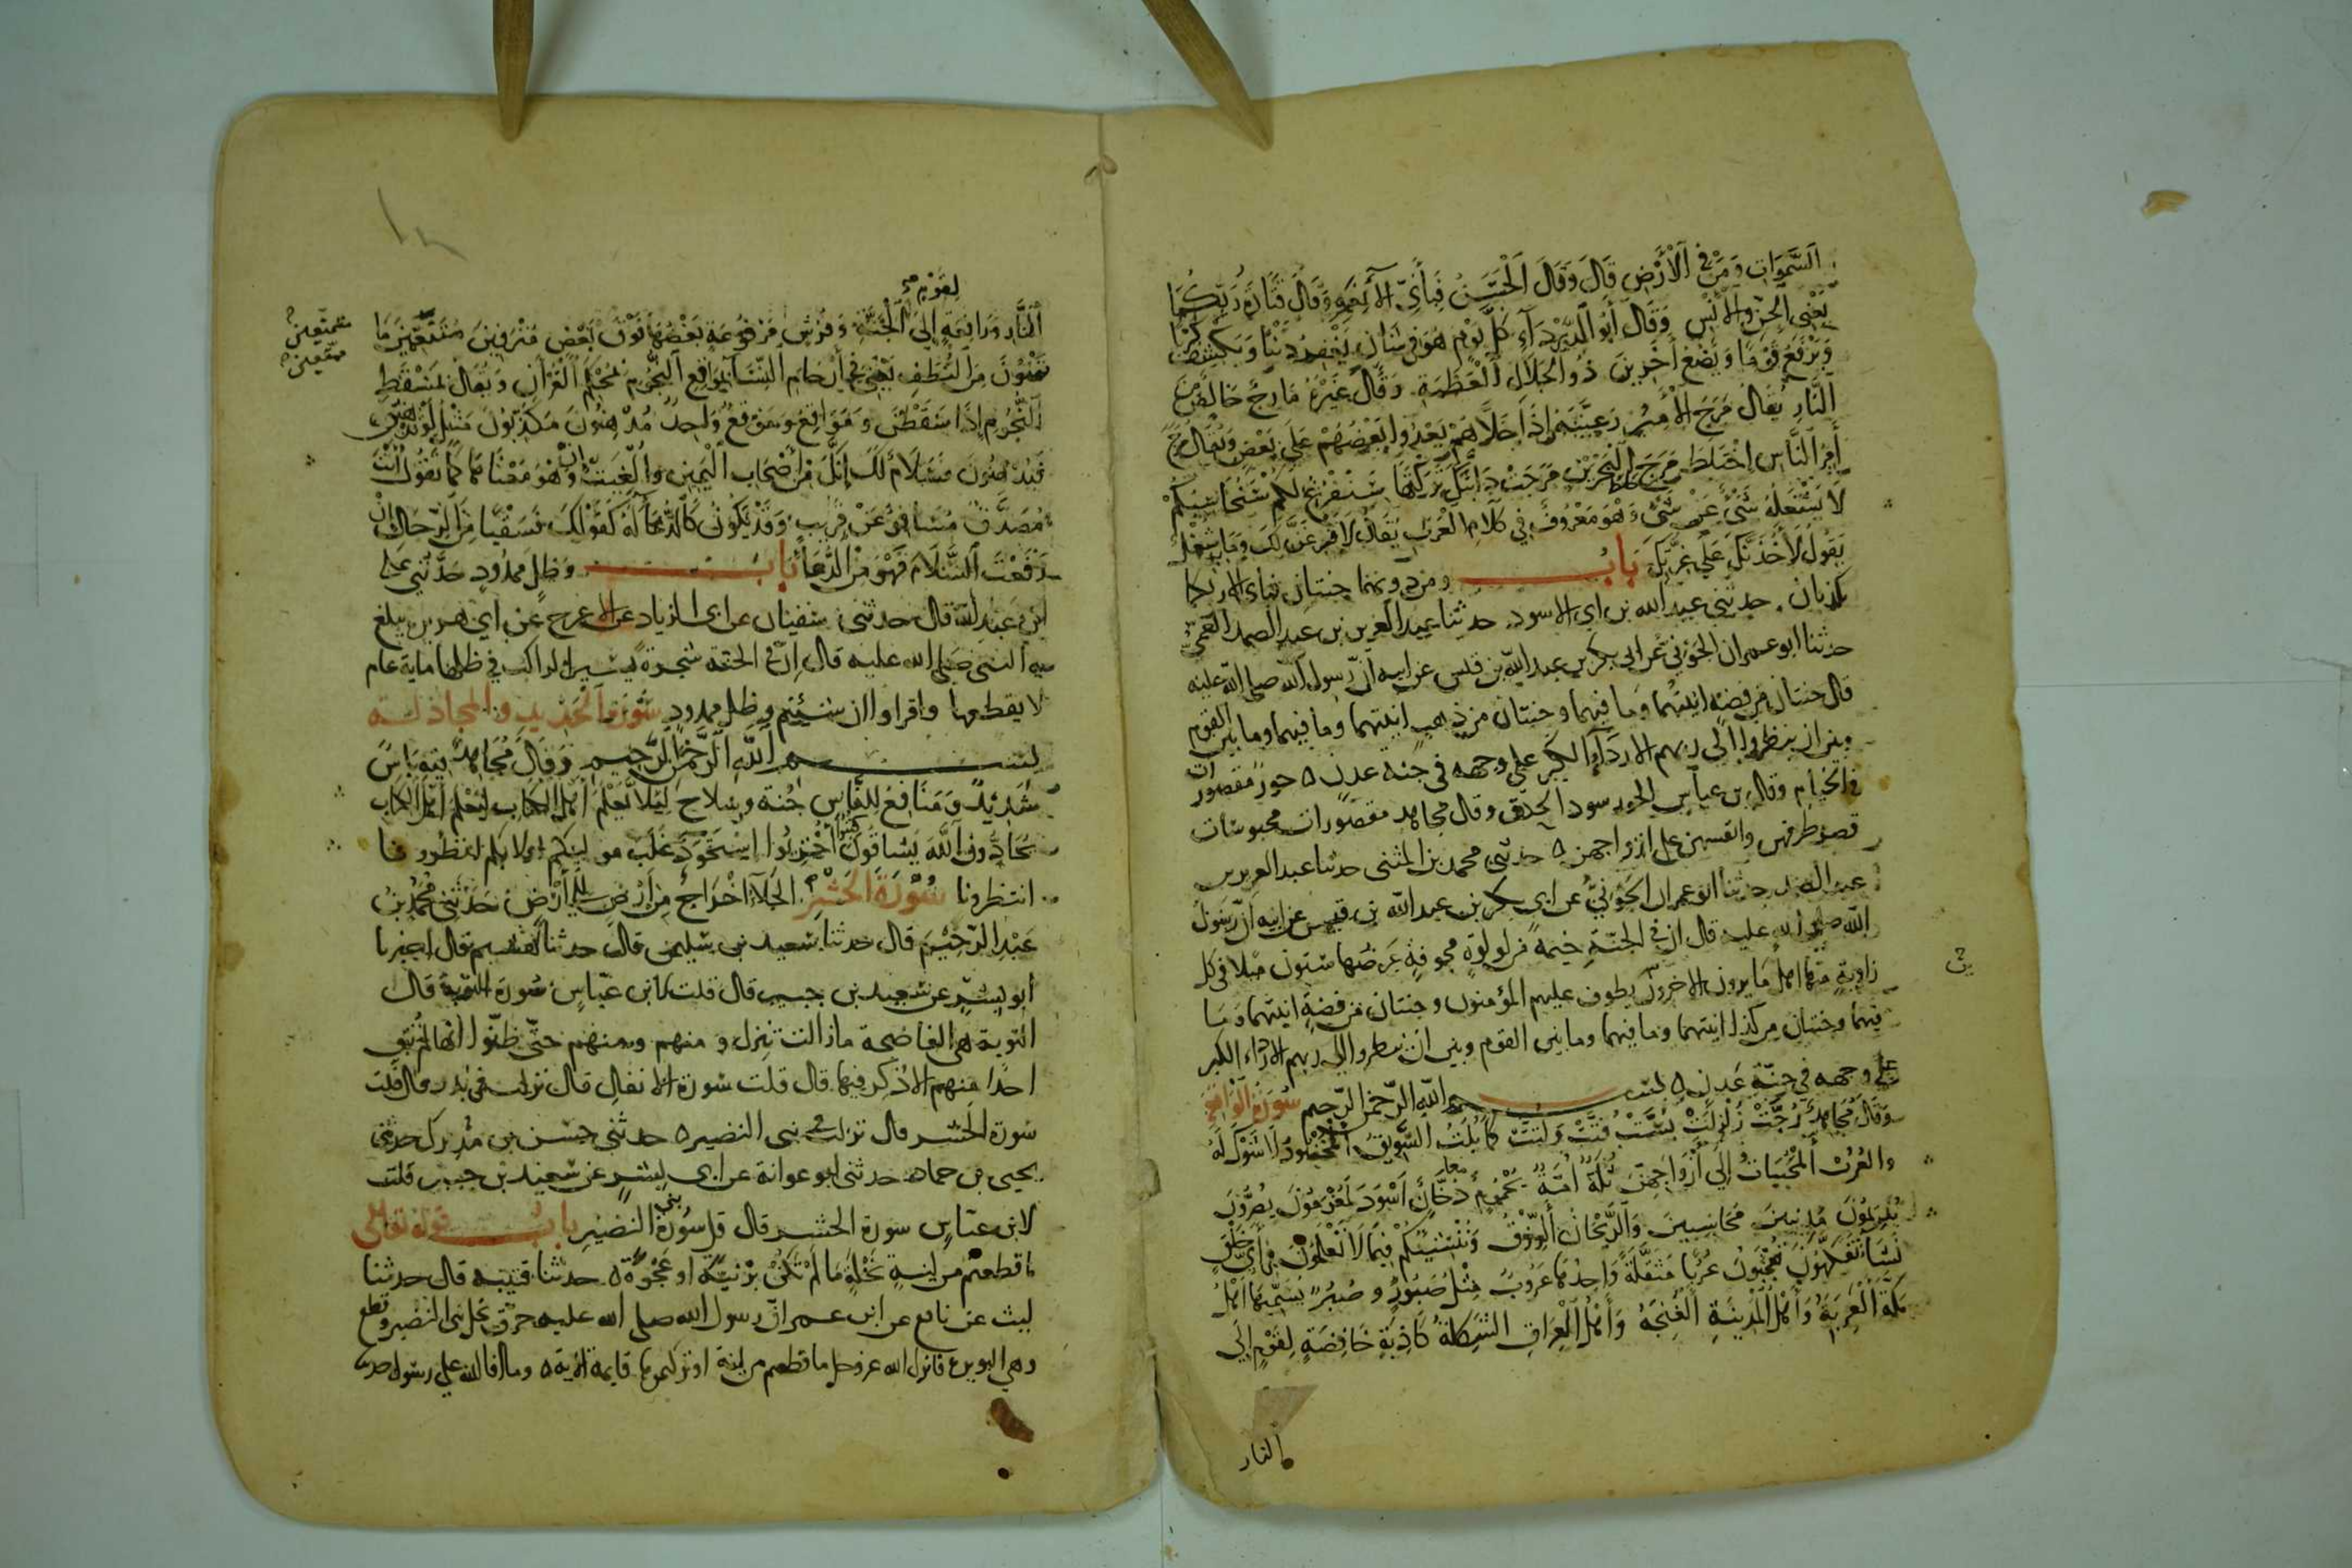 السموات ومن في الأرض قال وقال الحسن فبأي آلاء نعمه وقال قتادة ربكما
يعني الجن والإنس وقال أبو الدرداء كل يوم هو في شأن يغفر ذنبا ويكشف كربا
ويرفع قوما ويضع آخرين ذو الجلال العظمة وقال غيره مارج خالص من
النار يقال مرج الأمير رعيته إذا خلاهم يعدوا بعضهم على بعض ويقال مرج
أمر الناس اختلط مرج البحرين مرجت دابتك تركتها سنفرغ لكم سنحاسبكم
لا يشغله شيء عن شيء وهو معروف في كلام العرب يقال لأفرغن لك وما به شغل
يقول لأخذنك على غرتك باب ومن دونهما جنتان فبأي آلاء ربكما
تكذبان حدثني عبد الله بن أبي الأسود حدثنا عبد العزيز بن عبد الصمد العمي
حدثنا أبو عمران الجوني عن أبي بكر بن عبد الله بن قيس عن أبيه أن رسول الله صلى الله عليه
قال جنتان من فضة آنيتهما وما فيهما وجنتان من ذهب آنيتهما وما فيهما وما بين القوم
وبين أن ينظروا إلى ربهم إلا رداء الكبر على وجهه في جنة عدن ه حور مقصورات
في الخيام وقال بن عباس الحور سود الحدق وقال مجاهد مقصورات محبوسات
قصر طرفهن وأنفسهن على أزواجهن ه حدثني محمد بن المثنى حدثنا عبد العزيز بن
عبد الصمد حدثنا أبو عمران الجوني عن أبي بكر بن عبد الله بن قيس عن أبيه أن رسول
الله صلى الله عليه قال إن في الجنة خيمة من لؤلؤة مجوفة عرضها ستون ميلا في كل
زاوية منها أهل ما يرون الآخرون يطوف عليهم المؤمنون وجنتان من فضة آنيتهما وما
فيهما وجنتان من كذا آنيتهما وما فيهما وما بين القوم وبين أن ينظروا إلى ربهم إلا رداء الكبر
على وجهه في جنة عدن ه بسم الله الرحمن الرحيم سورة الواقعة
وقال مجاهد رجت زلزلت بست فتت ولتت كما يلت السويق المخضود لا شوك له
والعرب المحببات إلى أزواجهن ثلة أمة يحموم دخان أسود لمغرمون يصرون
يديمون مدينين محاسبين والريحان الرزق وننشئكم فيما لا تعلمون في أي خلق
نشاء تفكهون تعجبون عربا مثقلة واحدها عروب مثل صبور وصبر يسميها أهل
مكة العربة وأهل المدينة الغنجة وأهل العراق الشكلة كاذبة خافضة لقوم إلى
النار
لقوم
النار ورافعة إلى الجنة وفرش مرفوعة بعضها فوق بعض مترفين متنعمين ما
تمنون من النطف يعني في أرحام النساء بمواقع النجوم بمحكم القرآن ويقال بمسقط
النجوم إذا سقطن ومواقع وموقع واحد مدهنون مكذبون مثل لو تدهن
فيدهنون فسلام لك إنك من أصحاب اليمين وألغيت إن وهو معناها كما تقول أنت
مصدق مسافر عن قريب وقد يكون كالدعاء له كقولك فسقيا من الرجال إن
رفعت السلام فهو من الدعاء باب وظل ممدود حدثني علي
بن عبد الله قال حدثني سفيان عن أبي الزناد عن الأعرج عن أبي هريرة يبلغ
به النبي صلى الله عليه قال إن في الجنة شجرة يسير الراكب في ظلها ماية عام
لا يقطعها واقرأوا إن شئتم وظل ممدود سورة الحديد والمجادلة
بسم الله الرحمن الرحيم وقال مجاهد فيه بأس
شديد ومنافع للناس جنة وسلاح ليلا يعلم أهل الكتاب ليعلم أهل الكتاب
يحادون الله يشاقون كبتوا أخزيوا استحوذ غلب مولىكم أولى بكم انظرونا
انتظرونا سورة الحشر الجلاء إخراج من أرض إلى أرض حدثني محمد بن
عبد الرحيم قال حدثنا سعيد بن سليمن قال حدثنا هشيم قال أخبرنا
أبو بشر عن سعيد بن جبير قال قلت لابن عباس سورة التوبة قال
التوبة هي الفاضحة ما زالت تنزل ومنهم ومنهم حتى ظنوا أنها لم تبق
أحدا منهم إلا ذكر فيها قال قلت سورة الأنفال قال نزلت في بدر قال قلت
سورة الحشر قال نزلت في بني النضير ه حدثني حسن بن مدرك حدثني
يحيى بن حماد حدثني أبو عوانة عن أبي بشر عن سعيد بن جبير قلت
لابن عباس سورة الحشر قال قل سورة بني النضير باب قوله تعالى
ما قطعتم من لينة نخلة ما لم تكن برنية أو عجوة ه حدثنا قتيبة قال حدثنا
ليث عن نافع عن ابن عمر أن رسول الله صلى الله عليه حرق نخل بني النضير وقطع
وهي البويرة فأنزل الله عز وجل ما قطعتم من لينة أو تركتموها قايمة الآية ه وما أفاء الله على رسوله حدثنا